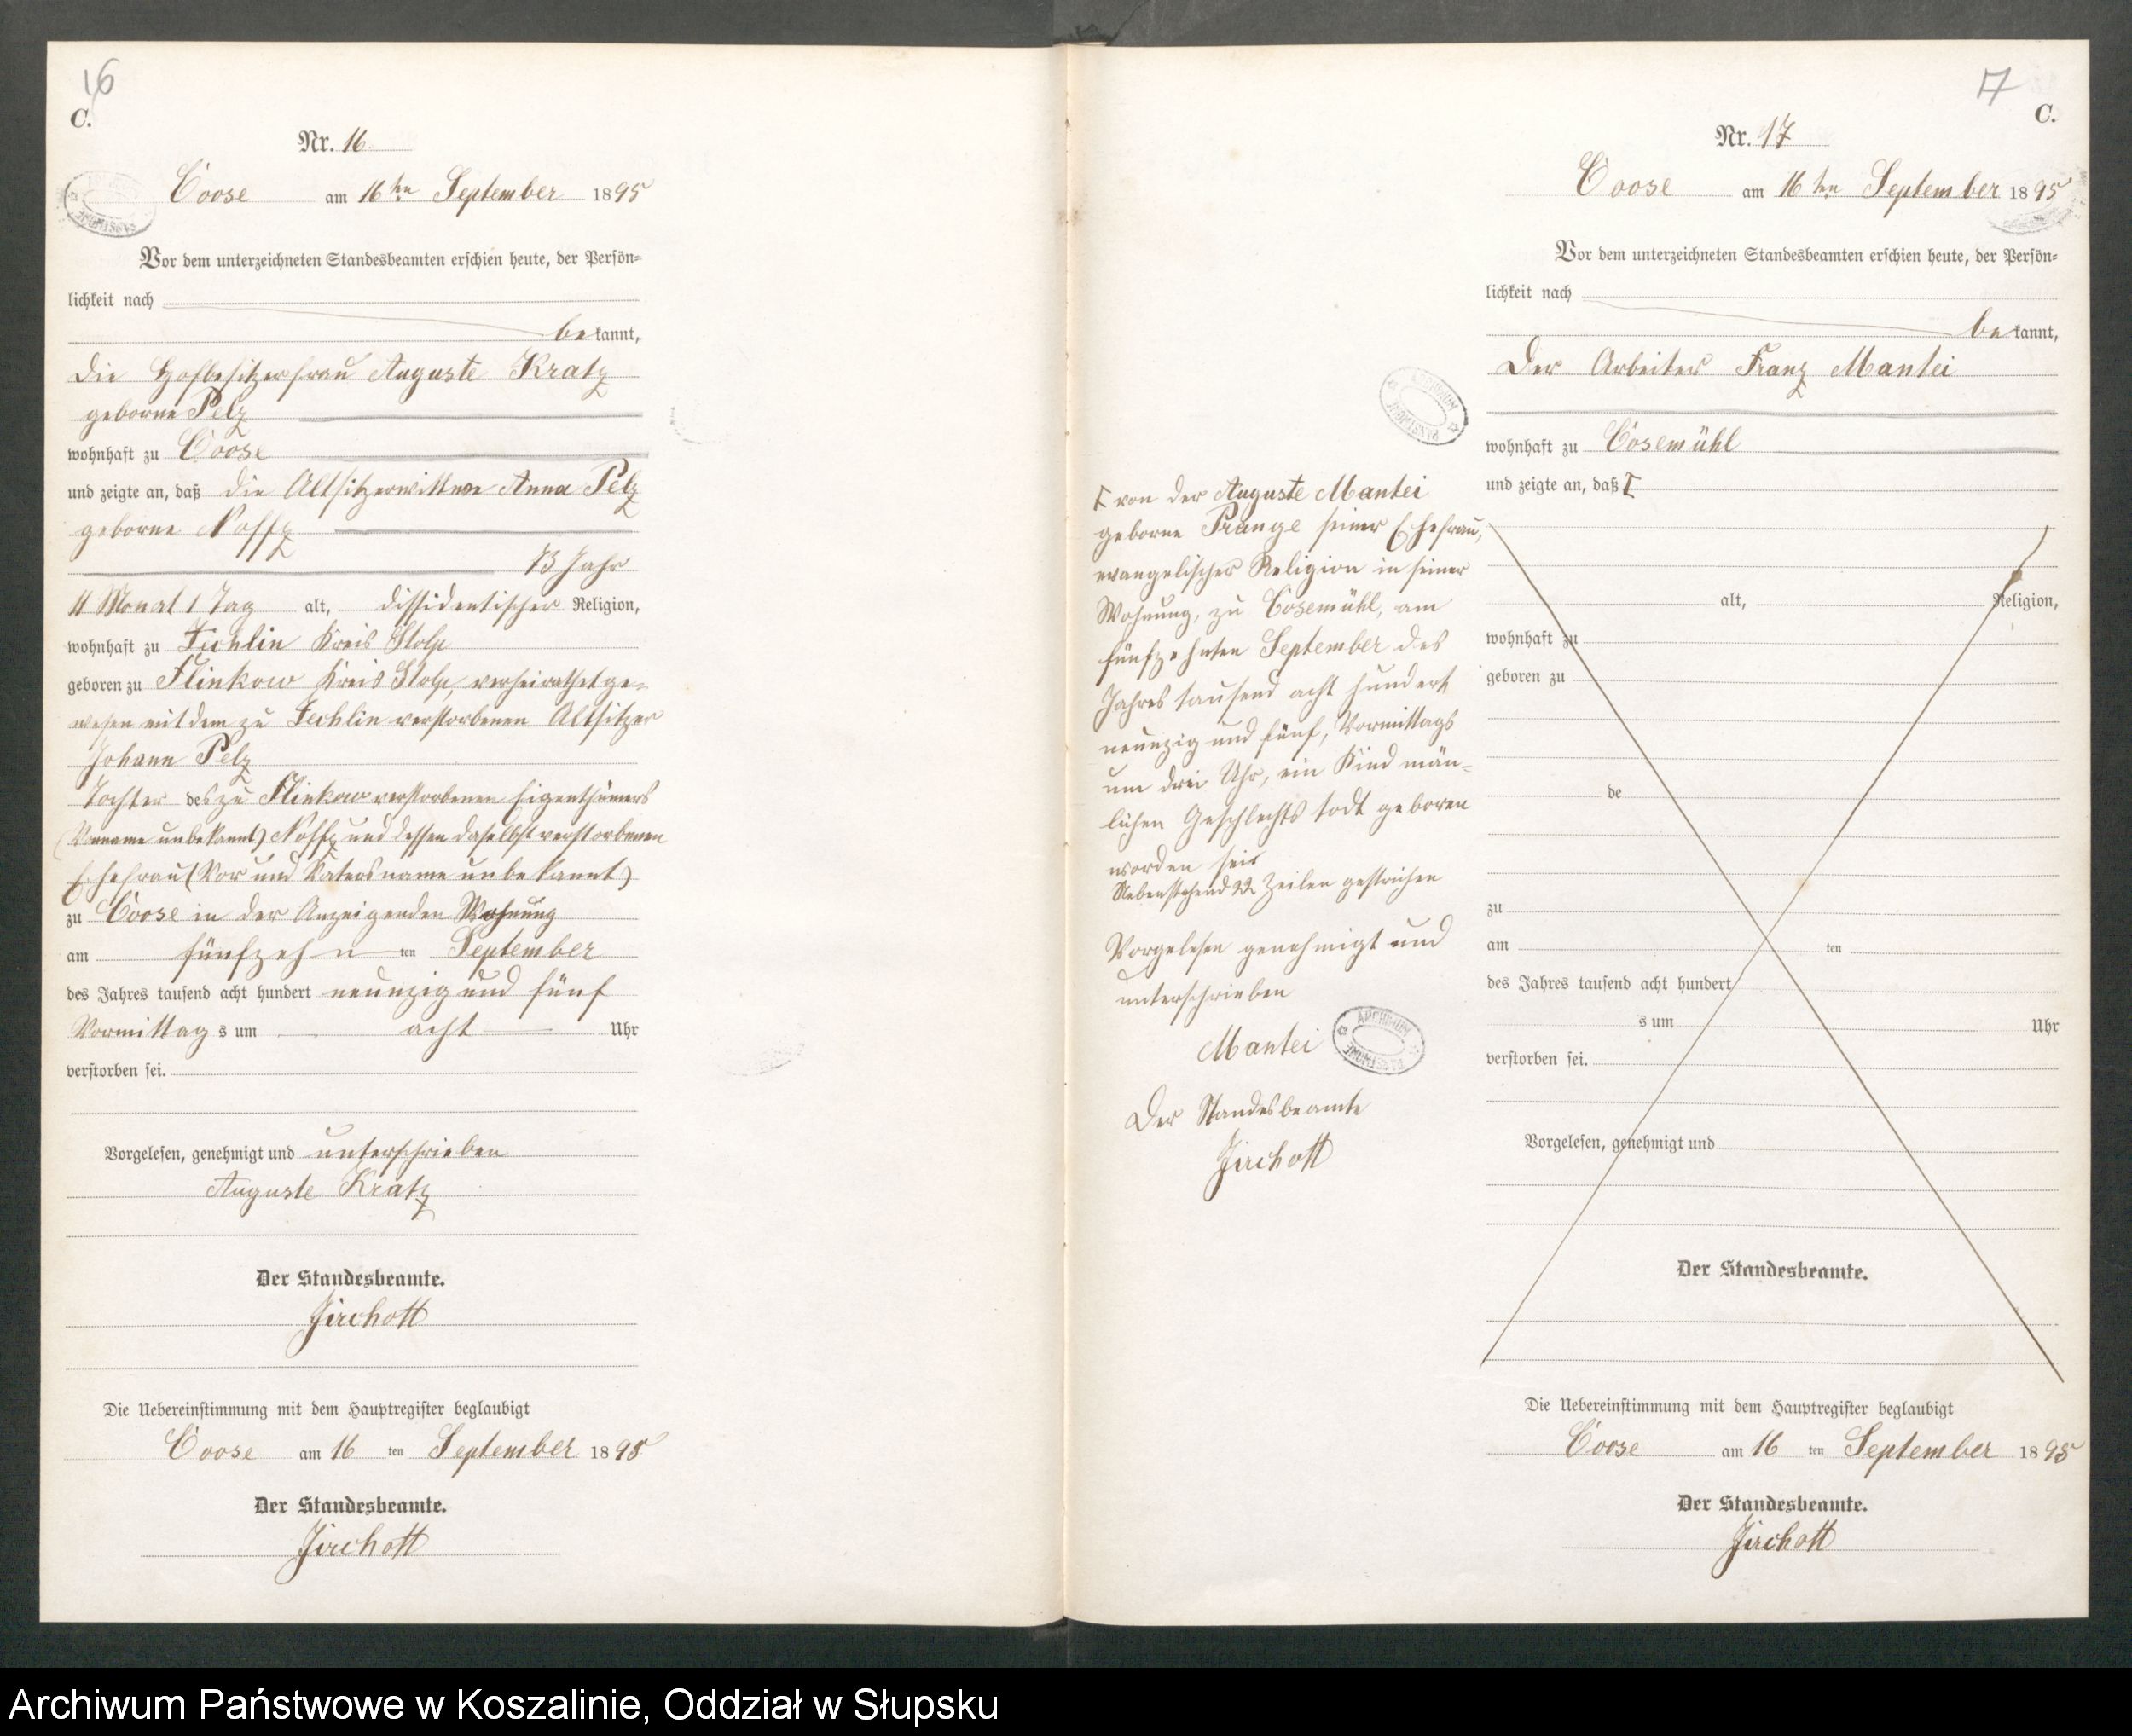 16
C.
Nr. 16.
Coose am 16ten September 1895
Vor dem unterzeichneten Standesbeamten erschien heute, der Persön=
lichkeit nach
bekannt,
die Hofbesitzerfrau Auguste Kratz
geborne Pelz
wohnhaft zu Coose
und zeigte an, daß die Altsitzerwittwe Anna Pelz
geborne Noffz
73 Jahr
4 Monat 1 Tag alt, dissidentischer Religion,
wohnhaft zu Techlin Kreis Stolp
geboren zu Flinkow Kreis Stolp, verheirathet ge=
wesen mit dem zu Techlin verstorbenen Altsitzer
Johann Pelz
Tochter des zu Flinkow verstorbenen Eigenthümers
(Vorname unbekannt) Noffz und dessen daselbst verstorbenen
Ehefrau (Vor und Vatersname unbekannt)
zu Coose in der Anzeigenden Wohnung
am fünfzehnten September
des Jahres tausend acht hundert neunzig und fünf
Vormittags um acht Uhr
verstorben sei.
Vorgelesen, genehmigt und unterschrieben
Auguste Kratz
Der Standesbeamte.
Jirchott
Die Uebereinstimmung mit dem Hauptregister beglaubigt
Coose am 16ten September 1895
Der Standesbeamte.
Jirchott
17
C.
Nr. 17
Coose am 16ten September 1895
Vor dem unterzeichneten Standesbeamten erschien heute, der Persön=
lichkeit nach
bekannt,
Der Arbeiter Franz Mantei
wohnhaft zu Cosemühl
und zeigte an, daß
von der Auguste Mantei
geborne Prange seiner Ehefrau,
evangelischer Religion in seiner
Wohnung, zu Cosemühl, am
fünfzehnten September des
Jahres tausend acht hundert
neunzig und fünf, Vormittags
um drei Uhr, ein Kind män=
lichen Geschlechts todt geboren
worden sei
Nebenstehend 22 Zeilen gestrichen
Vorgelesen genehmigt und
unterschrieben
Mantei
Der Standesbeamte
Jirchott
alt, Religion,
wohnhaft zu
geboren zu
de
zu
am ten
des Jahres tausend acht hundert
s um Uhr
verstorben sei.
Vorgelesen, genehmigt und
Der Standesbeamte.
Die Uebereinstimmung mit dem Hauptregister beglaubigt
Coose am 16 ten September 1895
Der Standesbeamte.
Jirchott
Archiwum Państwowe w Koszalinie, Oddział w Słupsku